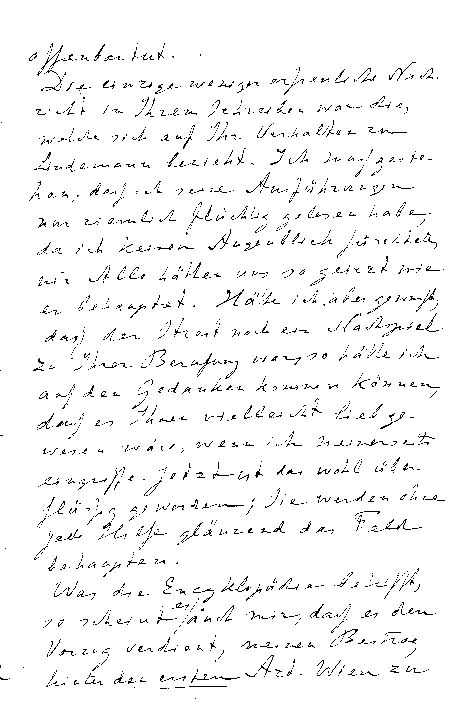 offenbart hat.
Die einzige weniger erfreuliche Nach-
richt in Ihrem Schreiben war die,
welche sich auf Ihr Verhalten zu
Lindemann bezieht. Ich muß geste-
hen, daß ich seine Ausführungen
nur ziemlich flüchtig gelesen habe,
da ich keinen Augenblick fürchtete,
wir Alle hätten uns so geirrt wie
er behauptet. Hätte ich aber gewußt,
daß der Streit noch ein Nachspiel
zu Ihrer Berufung war, so hätte ich
auf den Gedanken kommen können,
daß es Ihnen vielleicht lieb ge-
wesen wäre, wenn ich meinerseits
eingriffe. Jetzt ist das wohl über-
flüssig geworden; Sie werden ohne
jede Hilfe glänzend das Feld
behaupten.
Was die Encyklopädie betrifft,
so scheint es auch mir, daß es den
Vorzug verdient, meinen Beitrag
hinter den ersten Art. Wien zu